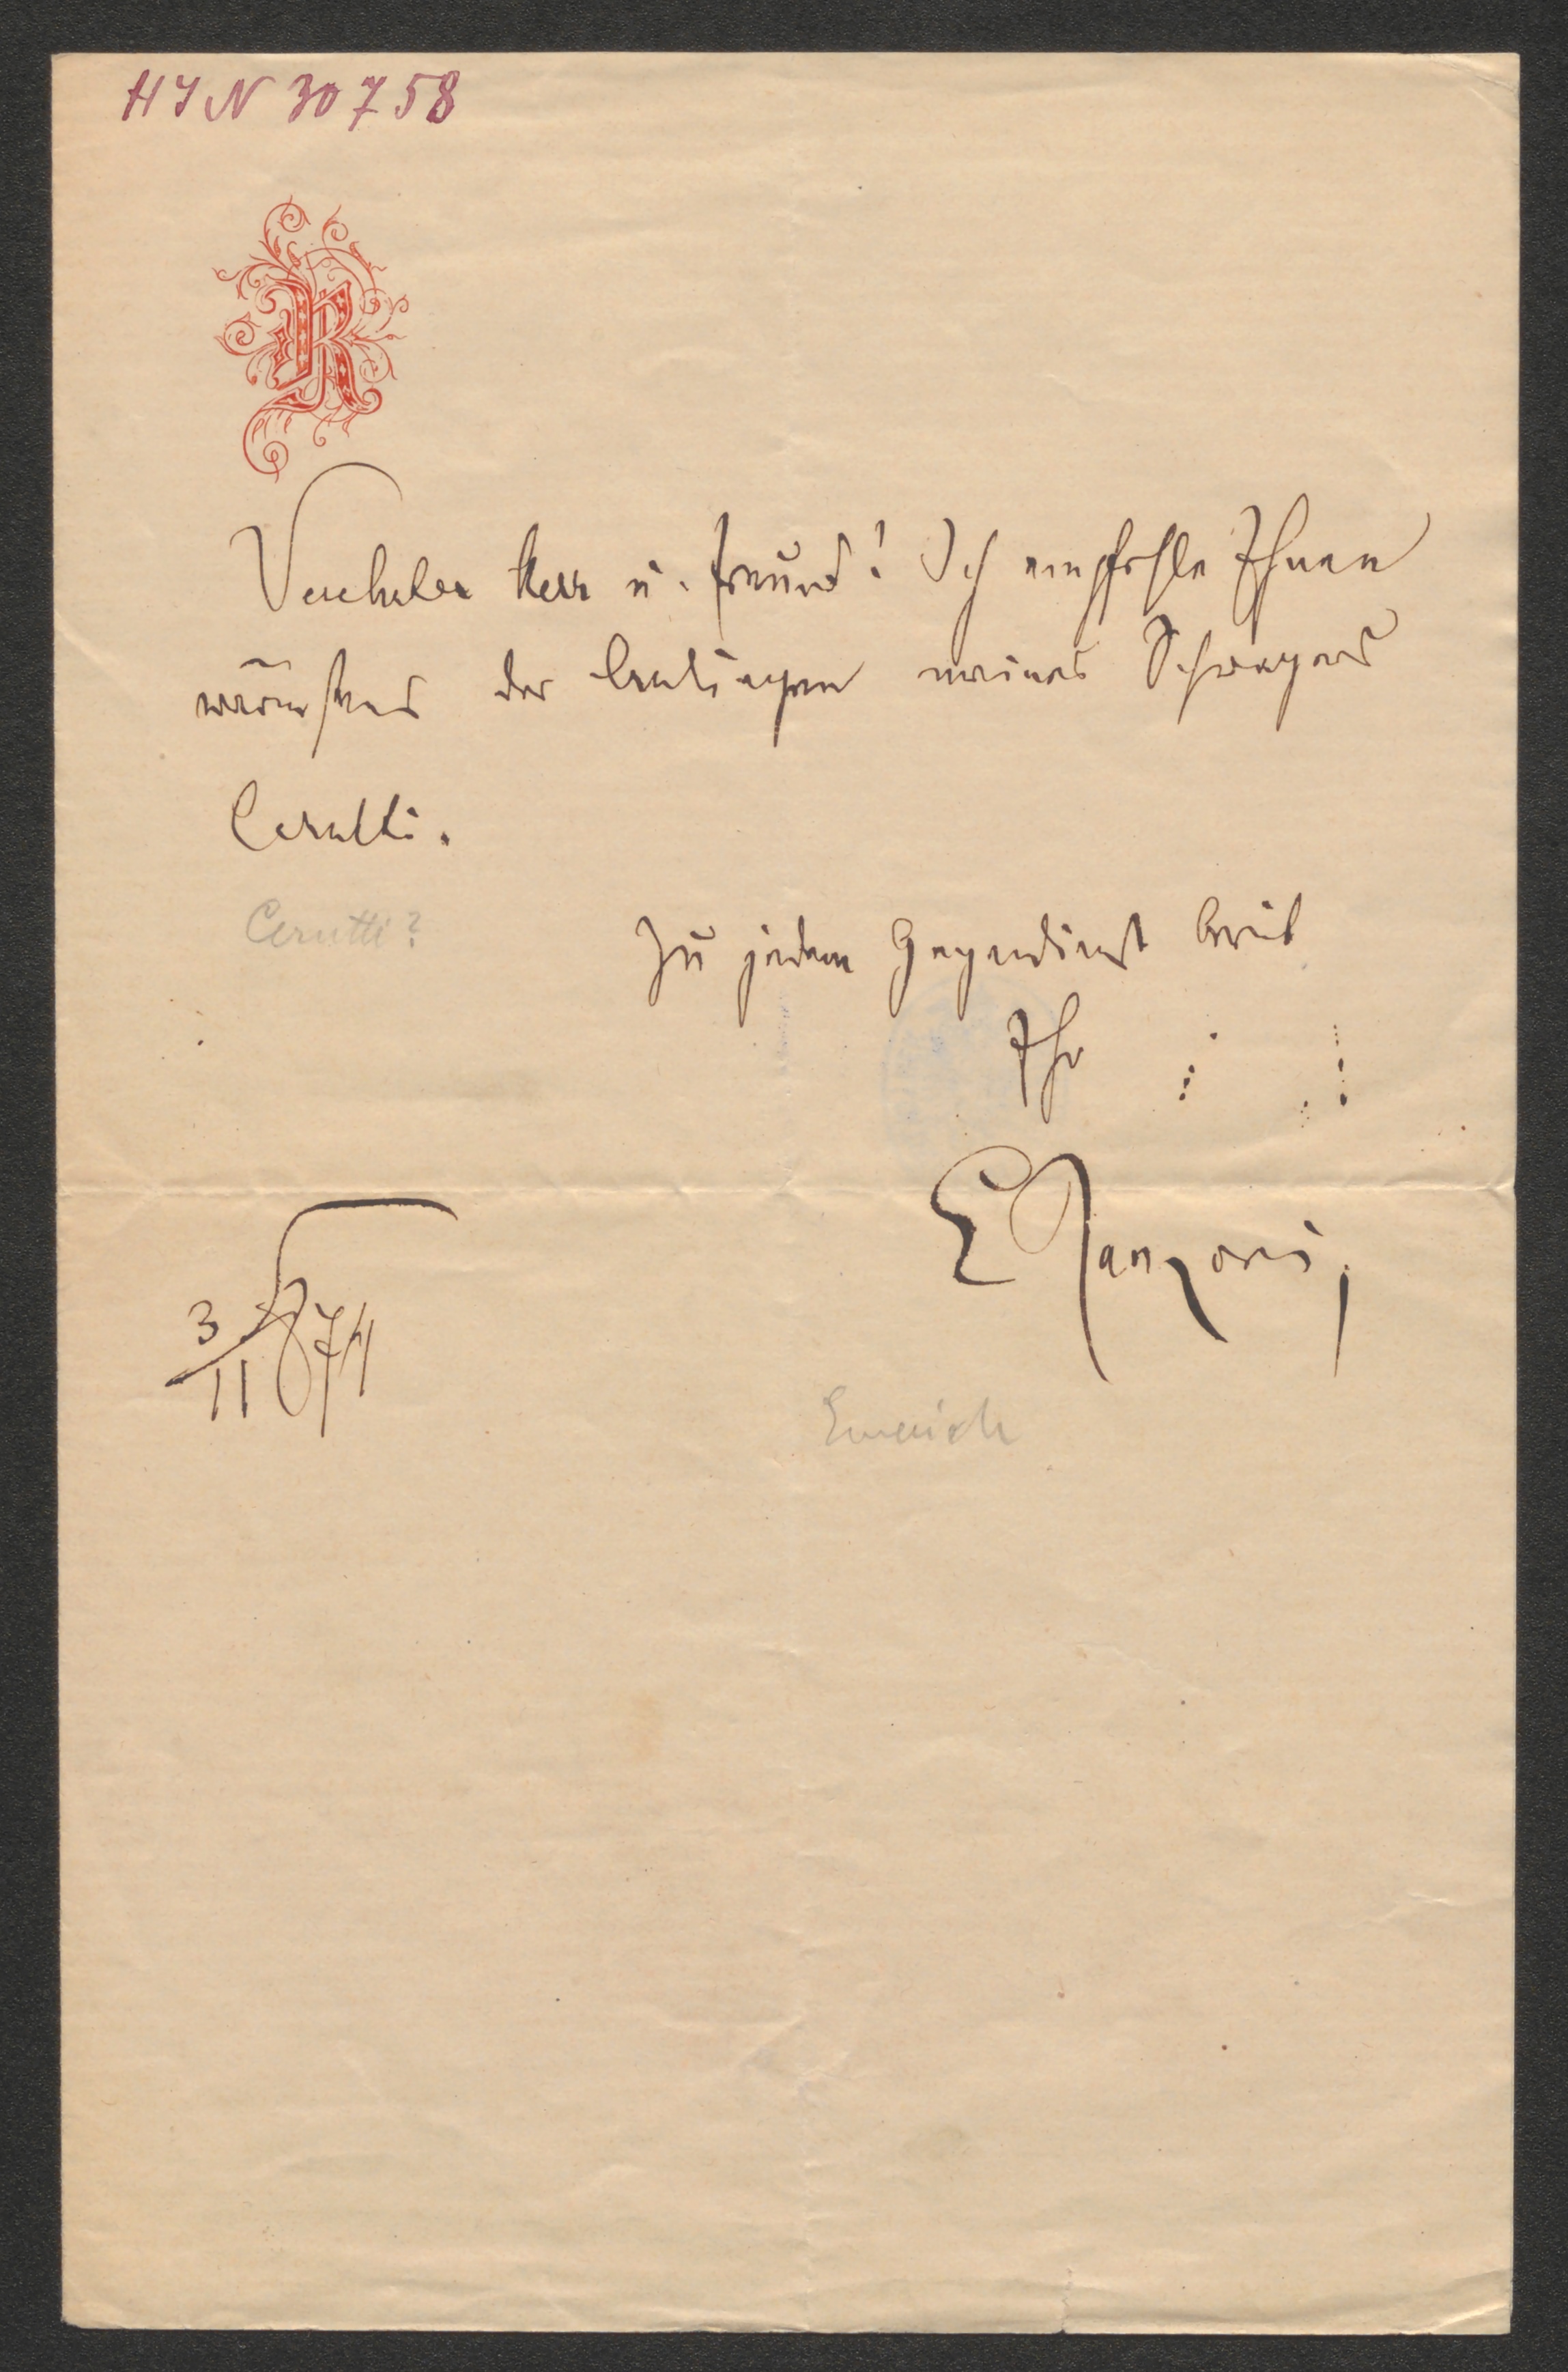 HIN 30758
R
Verehrter Herr u. Freund! Ich empfehle Ihnen
wärmstens das Anliegen meines Schwagers
Cerutti.
Cerutti?
Zu jedem Gegendienst bereit
Ihr
E Ranzoni
3/11 874
Emerich